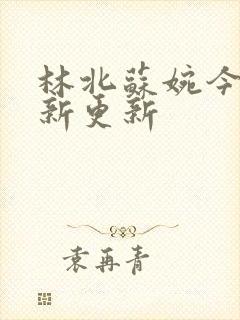 林北蘇婉今
新更新
袁再青